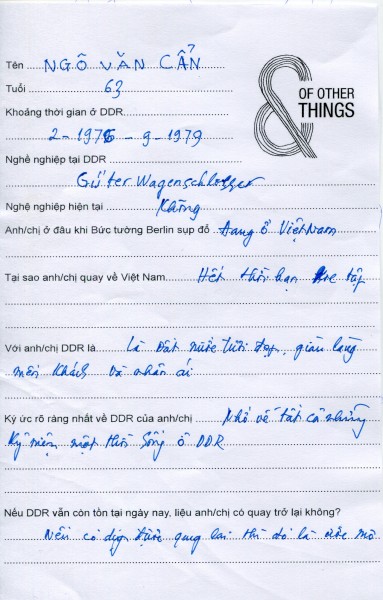 Tên NGÔ VĂN CẨN
OF OTHER
THINGS
Tuổi 63
Khoảng thời gian ở DDR
2-1976 - 9-1979
Nghề nghiệp tại DDR
Güter Wagenschlosser
Nghề nghiệp hiện tại Không
Anh/chị ở đâu khi Bức tường Berlin sụp đổ Đang ở Việt Nam
Tại sao anh/chị quay về Việt Nam. Hết thời hạn tập
Với anh/chị DDR là Là Đất nước tươi đẹp, giàu lòng
mến khách và nhân ái
Ký ức rõ ràng nhất về DDR của anh/chị Nhớ về tất cả những
kỷ niệm một thời sống ở DDR
Nếu DDR vẫn còn tồn tại ngày nay, liệu anh/chị có quay trở lại không?
Nếu có dịp được quay lại thì đó là ước mơ